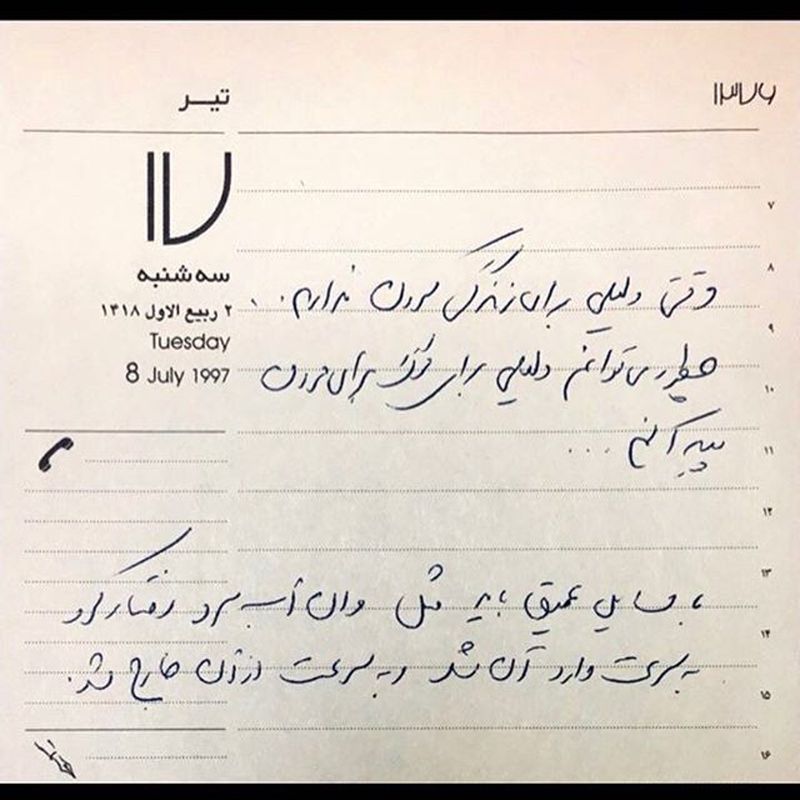 ۱۳۷۶
تیـــر
۱۷
سه شنبه
۲ ربیع الاول ۱۴۱۸
Tuesday
8 July 1997
۷
۸
۹
۱۰
۱۱
۱۲
۱۳
۱۴
۱۵
۱۶
وقتی دلیلی برای زندگی کردن ندارم . .
چطور می‌توانم دلیلی برای برای مردن
پیدا کنم ...
با مسایل عمیق باید مثل وان آب سرد رفتار کرد
به سرعت وارد آن شد و به سرعت از آن خارج شد.